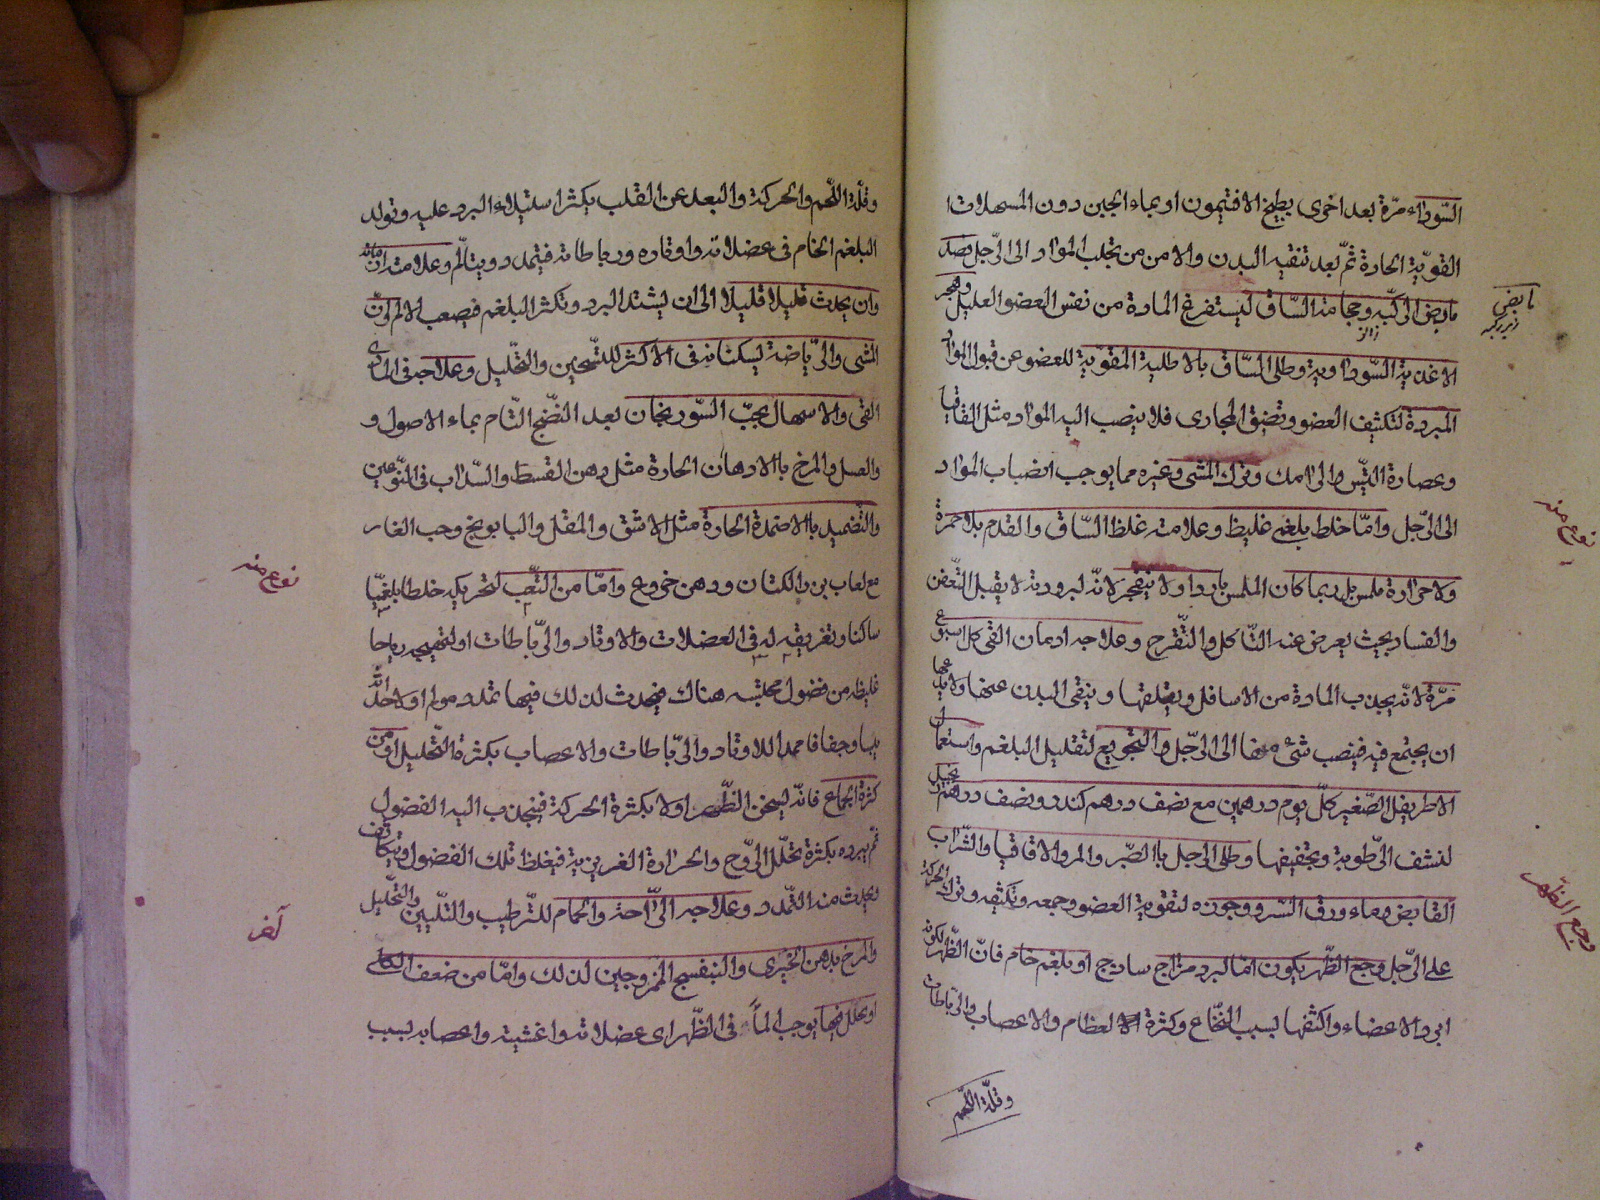 السوداء مرة بعد اخرى بطبيخ الافتيمون او بماء الجبن دون المسهلات
القوية الحارة ثم بعد تنقية البدن والامن من تجلب المواد الى الرجل بفصد
مابض الركبة وحجامة الساق ليستفرغ المادة من نفس العضو العليل وهجر
الاغذية السوداوية وطلى الساق بالاطلية المقوية للعضو عن قبول المواد
المبردة لتكثيف العضو وتضيق المجارى فلا ينصب اليه المواد مثل القاقيا
وعصارة التيس والرامك وترك المشى وغيره مما يوجب انصباب المواد
الى الرجل واما خلط بلغمى غليظ وعلامته غلظ الساق والقدم بلا حمرة
ولا حرارة ملمس بل ربما كان الملمس باردا ولا ينفجر لانه لبرودته لا يقبل التعفن
والفساد بحيث يعرض عنه التأكل والتقرح وعلاجه ادمان القى كل اسبوع
مرة لانه يجذب المادة من الاسافل ويقلعها وينقى البدن عنها ولا يدعها
ان يجتمع فيه فينصب شئ منها الى الرجل والتجويع لتقليل البلغم واستعمال
الاطريفل الصغير كل يوم درهمين مع نصف درهم كندر ونصف درهم زنجبيل
لنشف الرطوبة وتجفيفها وطلى الرجل بالصبر والمر والاقاقيا والشراب
القابض وماء ورق السرو وجوزه لتقوية العضو وجمعه وتكثيفه وترك الحركة
على الرجل وجع الظهر يكون اما لبرد مزاج ساذج او بلغم خام فان الظهر لكونه
ابرد الاعضاء واكثفها بسبب النخاع وكثرة العظام والاعصاب والرباطات
وقلة اللحم
مابض
نوع منه
وجع الظهر
وقلة اللحم والحركة والبعد عن القلب يكثر استيلاء البرد عليه وتولد
البلغم الخام فى عضلاته واوتاره ورباطاته فيتمدد ويتألم وعلامته
وان يحدث قليلا قليلا الى ان يشتد البرد وتكثر البلغم فيصعب الالم وان
المشى والرياضة يسكنانه فى الاكثر للتسخين والتحليل وعلاجه فى المادى
القى والاسهال بحب السورنجان بعد النضج التام بماء الاصول و
والعسل والمرخ بالادهان الحارة مثل دهن القسط والسداب فى النوعين
والتضميد بالاضمدة الحارة مثل الاشق والمقل والبابونج وحب الغار
مع لعاب بزر الكتان ودهن خروع واما من التعب لتحريكه خلطا بلغميا
ساكنا وتفريقه له فى العضلات والاوتار والرباطات او لتهييجه رياحا
غليظه من فضول محتبسة هناك فيحدث لذلك فيها تمدد مولم او لاحداثه
يبسا وجفافا ممددا للاوتار والرباطات والاعصاب بكثرة التحليل او من
كثرة الجماع فانه ليسخن الظهر اولا بكثرة الحركة فينجذب اليه الفضول
ثم يبرده بكثرة تحلل الروح والحرارة الغريزية فيغلظ تلك الفضول ويتكاثف
يحدث منه التمدد وعلاجه الراحة والحمام للترطيب والتليين والتحليل
والمرخ بدهن الخيرى والبنفسج الممزوجين لذلك واما من ضعف الكلى
او تحلل فيها يوجب الما فى الظهر اى عضلاته واغشيته واعصابه بسبب
نوع منه
آخر